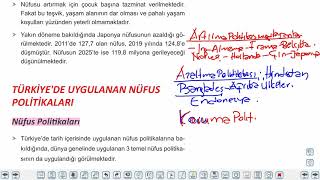 • Nüfusu artırmak için çocuk başına tazminat verilmektedir.
Fakat bu teşvik, yaşam alanının dar olması ve pahalı yaşam
koşulları yüzünden yeterli olmamaktadır.
• Yakın döneme bakıldığında Japonya nüfusunun azaldığı gö-
rülmektedir. 2011'de 127,7 olan nüfus, 2019 yılında 124,8'e
düşmüştür. Nüfusun 2025'te ise 119,8 milyona gerileyeceği
düşünülmektedir.
TÜRKİYE'DE UYGULANAN NÜFUS
POLİTİKALARI
Nüfus Politikaları
• Türkiye'de tarih içerisinde uygulanan nüfus politikalarına ba-
kıldığında, dünya genelinde uygulanan 3 temel nüfus politika-
sının da uygulandığı görülmektedir.
Artırma Politikası
Almanya - Fransa Belçika
Norveç - Hollanda - Çin - Japonya
Azaltma Politikası; Hindistan
Bangladeş - Afrika Ülkeleri
Endonezya
Koruma Polit.